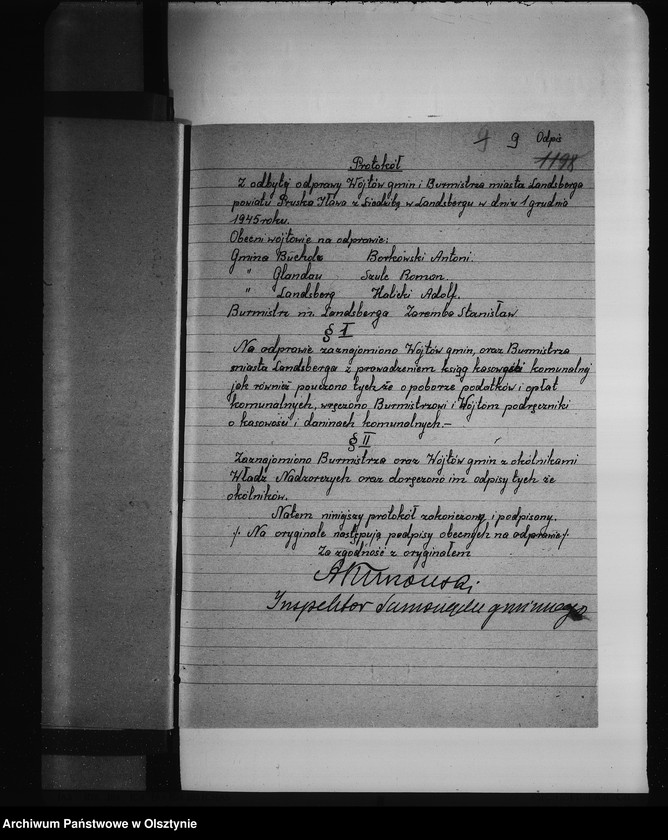 9 9 Odpis
1198
Protokół
Z odbytej odprawy Wójtów gmin i Burmistrza miasta Landsberga
powiatu Pruska Iława z siedzibą w Landsbergu w dniu 1 grudnia
1945 roku.
Obecni wójtowie na odprawie:
Gmina Bucholz Borkowski Antoni.
" Glandau Szulc Roman.
" Landsberg Halicki Adolf.
Burmistrz m. Landsberga Zaremba Stanisław
§ I
Na odprawie zaznajomiono Wójtów gmin, oraz Burmistrza
miasta Landsberga z prowadzeniem ksiąg kasowości komunalnej
jak również pouczono tych że o poborze podatków i opłat
komunalnych, wręczono Burmistrzowi i Wójtom podręczniki
o kasowości i daninach komunalnych.-
§ II
Zaznajomiono Burmistrza oraz Wójtów gmin z okólnikami
Władz Nadzorczych oraz doręczono im odpisy tych że
okólników.
Natem niniejszy protokół zakończony i podpisany.
/. Na oryginale następują podpisy obecnych na odprawie /.
Za zgodność z oryginałem
Inspektor Samorządu gminnego
Archiwum Państwowe w Olsztynie